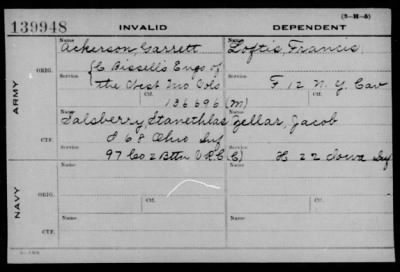 (3-H-5)
139948 INVALID DEPENDENT
Name Name
Ackerson, Garrett Loftis, Francis,
ARMY
ORIG. Service Service
{C Bissell's Engs of F 12 N.Y. Cav
the West Mo Vols
Ctf. Ctf.
136696 (M)
Name Name
Salsberry, Stanethlas Zellar, Jacob
CTF. Service Service
F 68 Ohio Inf
97 Co 2 Bttn V.R.C. (C) H 22 Iowa Inf
NAVY
Name Name
ORIG. Ctf. Ctf.
Name Name
CTF. Service